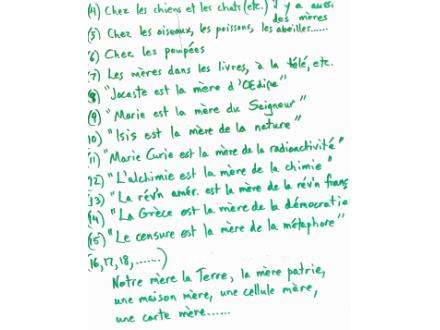 (4) Chez les chiens et les chats (etc.) il y a aussi
des mères
(5) Chez les oiseaux, les poissons, les abeilles......
(6) Chez les poupées
(7) Les mères dans les livres, à la télé, etc.
(8) "Jocaste est la mère d'Œdipe"
(9) "Marie est la mère du Seigneur"
10) "Isis est la mère de la nature"
(11) "Marie Curie est la mère de la radioactivité"
(12) "L'alchimie est la mère de la chimie"
(13) "La rév'n amér. est la mère de la rév'n franç
(14) "La Grèce est la mère de la démocratie
(15) "Le censure est la mère de la métaphore"
(16,17,18,......)
Notre mère la Terre, la mère patrie,
une maison mère, une cellule mère,
une carte mère......